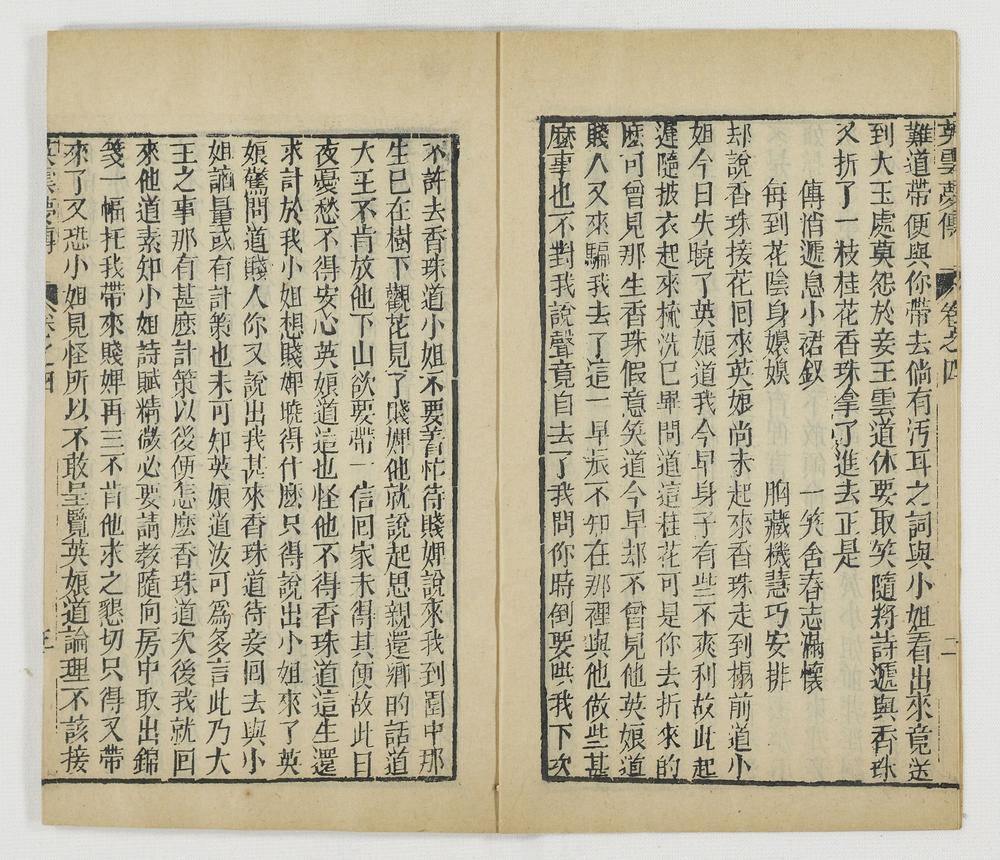 英雲夢傳 卷之四 二
難道帶便與你帶去倘有汚耳之詞與小姐看出來竟送
到大王處莫怨於妾王雲道休要取笑隨將詩遞與香珠
又折了一枝桂花香珠拿了進去正是
傳消遞息小裙釵 一笑舍春志滿懷
每到花陰身嬝娛 胸藏機慧巧安排
却說香珠接花回來英娘尚未起來香珠走到榻前道小
姐今日失曉了英娘道我今早身子有些不爽利故此起
遲隨披衣起來梳洗已畢問道這桂花可是你去折來的
麽可曾見那生香珠假意笑道今早却不曾見他英娘道
賤人又來騙我去了這一早辰不知在那裡與他做些甚
麽事也不對我說聲竟自去了我問你時倒要哄我下次
不許去香珠道小姐不要着忙待賤婢說來我到園中那
生已在樹下觀花見了賤婢他就說起思親還鄉的話道
大王不肯放他下山欲要帶一信回家未得其便故此日
夜憂愁不得安心英娘道這也怪他不得香珠道這生還
求計於我小姐想賤婢曉得什麽只得說出小姐來了英
娘驚問道賤人你又說出我甚來香珠道待妾回去與小
姐酌量或有計策也未可知英娘道汝可爲多言此乃大
王之事那有甚麽計策以後便怎麽香珠道次後我就回
來他道素知小姐詩賦精微必要請教隨向房中取出錦
箋一幅托我帶來賤婢再三不肯他求之懇切只得又帶
來了又恐小姐見怪所以不敢呈覽英娘道論理不該接
英雲夢傳 卷之四 三